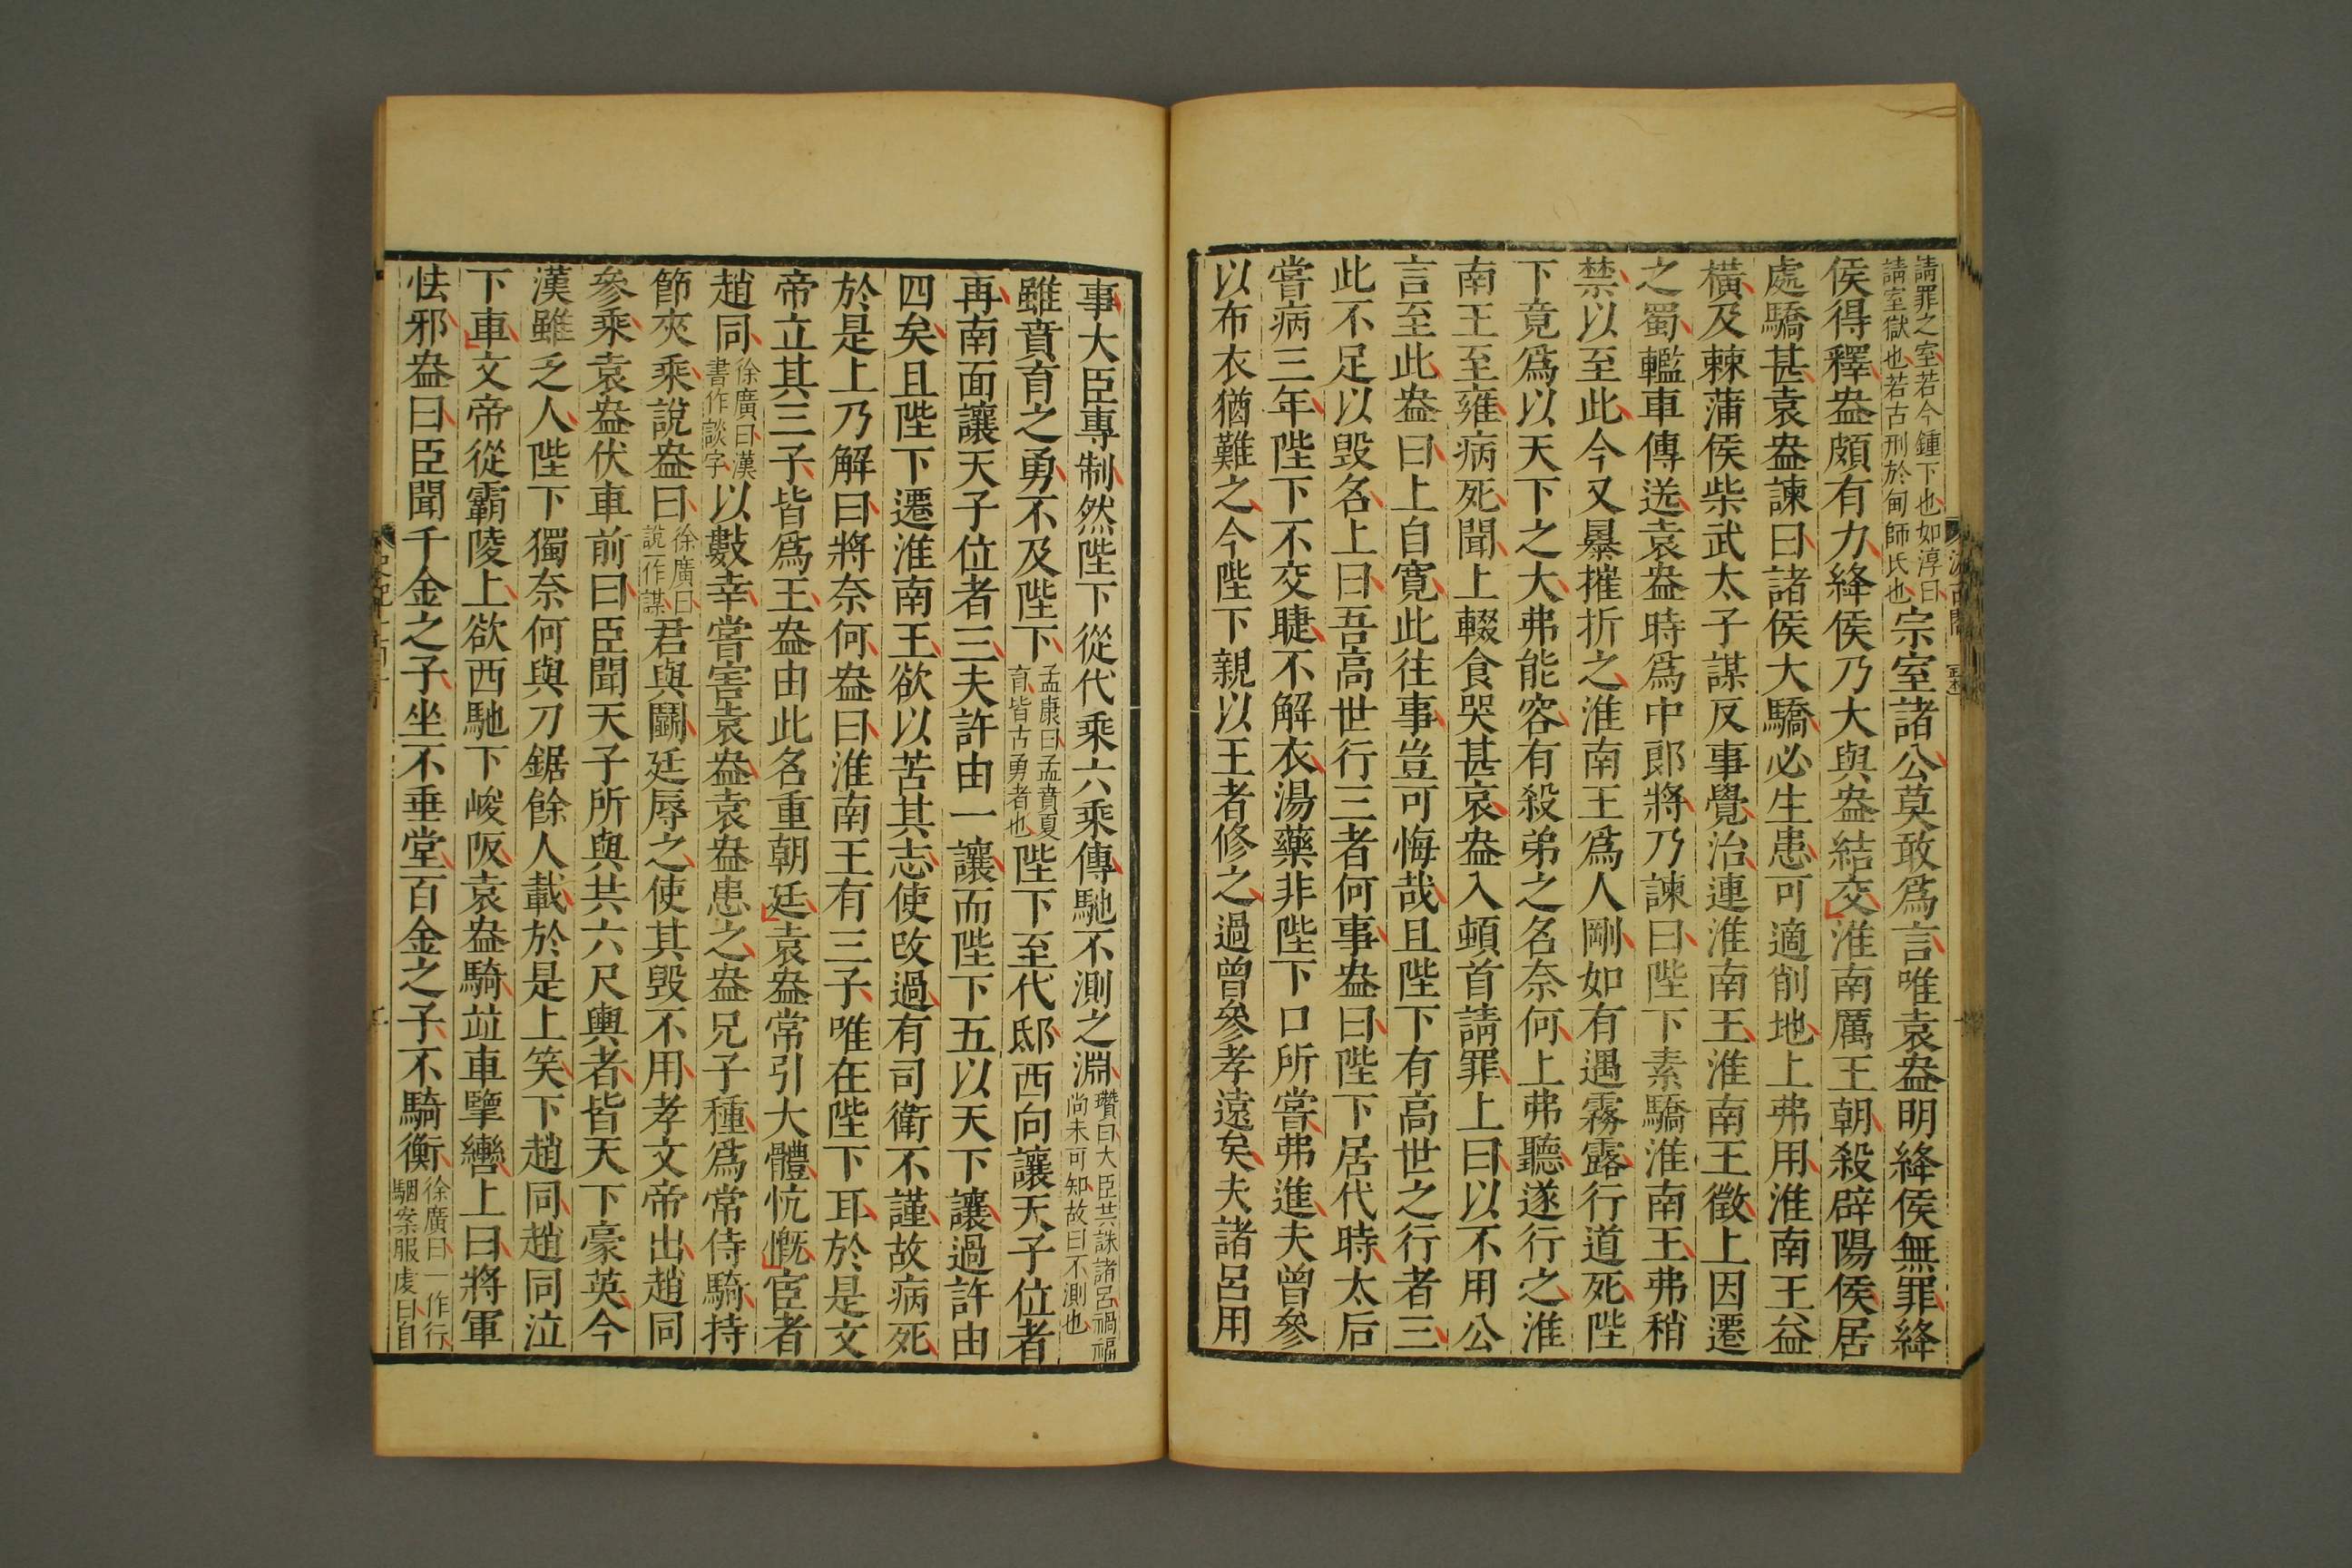 請罪之室若今鍾下也如淳曰請室獄也若古刑於甸師氏也宗室諸公莫敢爲言唯袁盎明絳侯無罪絳
侯得釋盎頗有力絳侯乃大與盎結交淮南厲王朝殺辟陽侯居
處驕甚袁盎諫曰諸侯大驕必生患可適削地上弗用淮南王益
橫及棘蒲侯柴武太子謀反事覺治連淮南王淮南王徵上因遷
之蜀轞車傳送袁盎時爲中郎將乃諫曰陛下素驕淮南王弗稍
禁以至此今又暴摧折之淮南王爲人剛如有遇霧露行道死陛
下竟爲以天下之大弗能容有殺弟之名奈何上弗聽遂行之淮
南王至雍病死聞上輟食哭甚哀盎入頓首請罪上曰以不用公
言至此盎曰上自寬此往事豈可悔哉且陛下有高世之行者三
此不足以毀名上曰吾高世行三者何事盎曰陛下居代時太后
嘗病三年陛下不交睫不解衣湯藥非陛下口所嘗弗進夫曾參
以布衣猶難之今陛下親以王者修之過曾參孝遠矣夫諸呂用
事大臣專制然陛下從代乘六乘傳馳不測之淵瓚曰大臣共誅諸呂禍福尚未可知故曰不測也
雖賁育之勇不及陛下孟康曰孟賁夏育皆古勇者也陛下至代邸西向讓天子位者
再南面讓天子位者三夫許由一讓而陛下五以天下讓過許由
四矣且陛下遷淮南王欲以苦其志使改過有司衛不謹故病死
於是上乃解曰將奈何盎曰淮南王有三子唯在陛下耳於是文
帝立其三子皆爲王盎由此名重朝廷袁盎常引大體忼慨宦者
趙同徐廣曰漢書作談字以數幸嘗害袁盎袁盎患之盎兄子種爲常侍騎持
節夾乘說盎曰徐廣曰說作謀君與鬬廷辱之使其毀不用孝文帝出趙同
參乘袁盎伏車前曰臣聞天子所與共六尺輿者皆天下豪英今
漢雖乏人陛下獨奈何與刀鋸餘人載於是上笑下趙同趙同泣
下車文帝從霸陵上欲西馳下峻阪袁盎騎竝車擥轡上曰將軍
怯邪盎曰臣聞千金之子坐不垂堂百金之子不騎衡徐廣曰一作行駰案服虔曰自